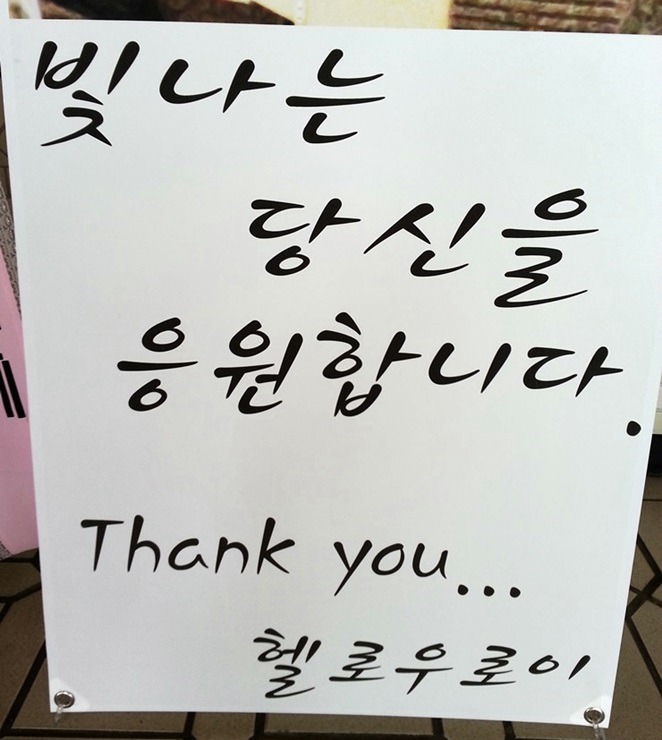 빛나는
당신을
응원합니다.
Thank you...
헬로우로이